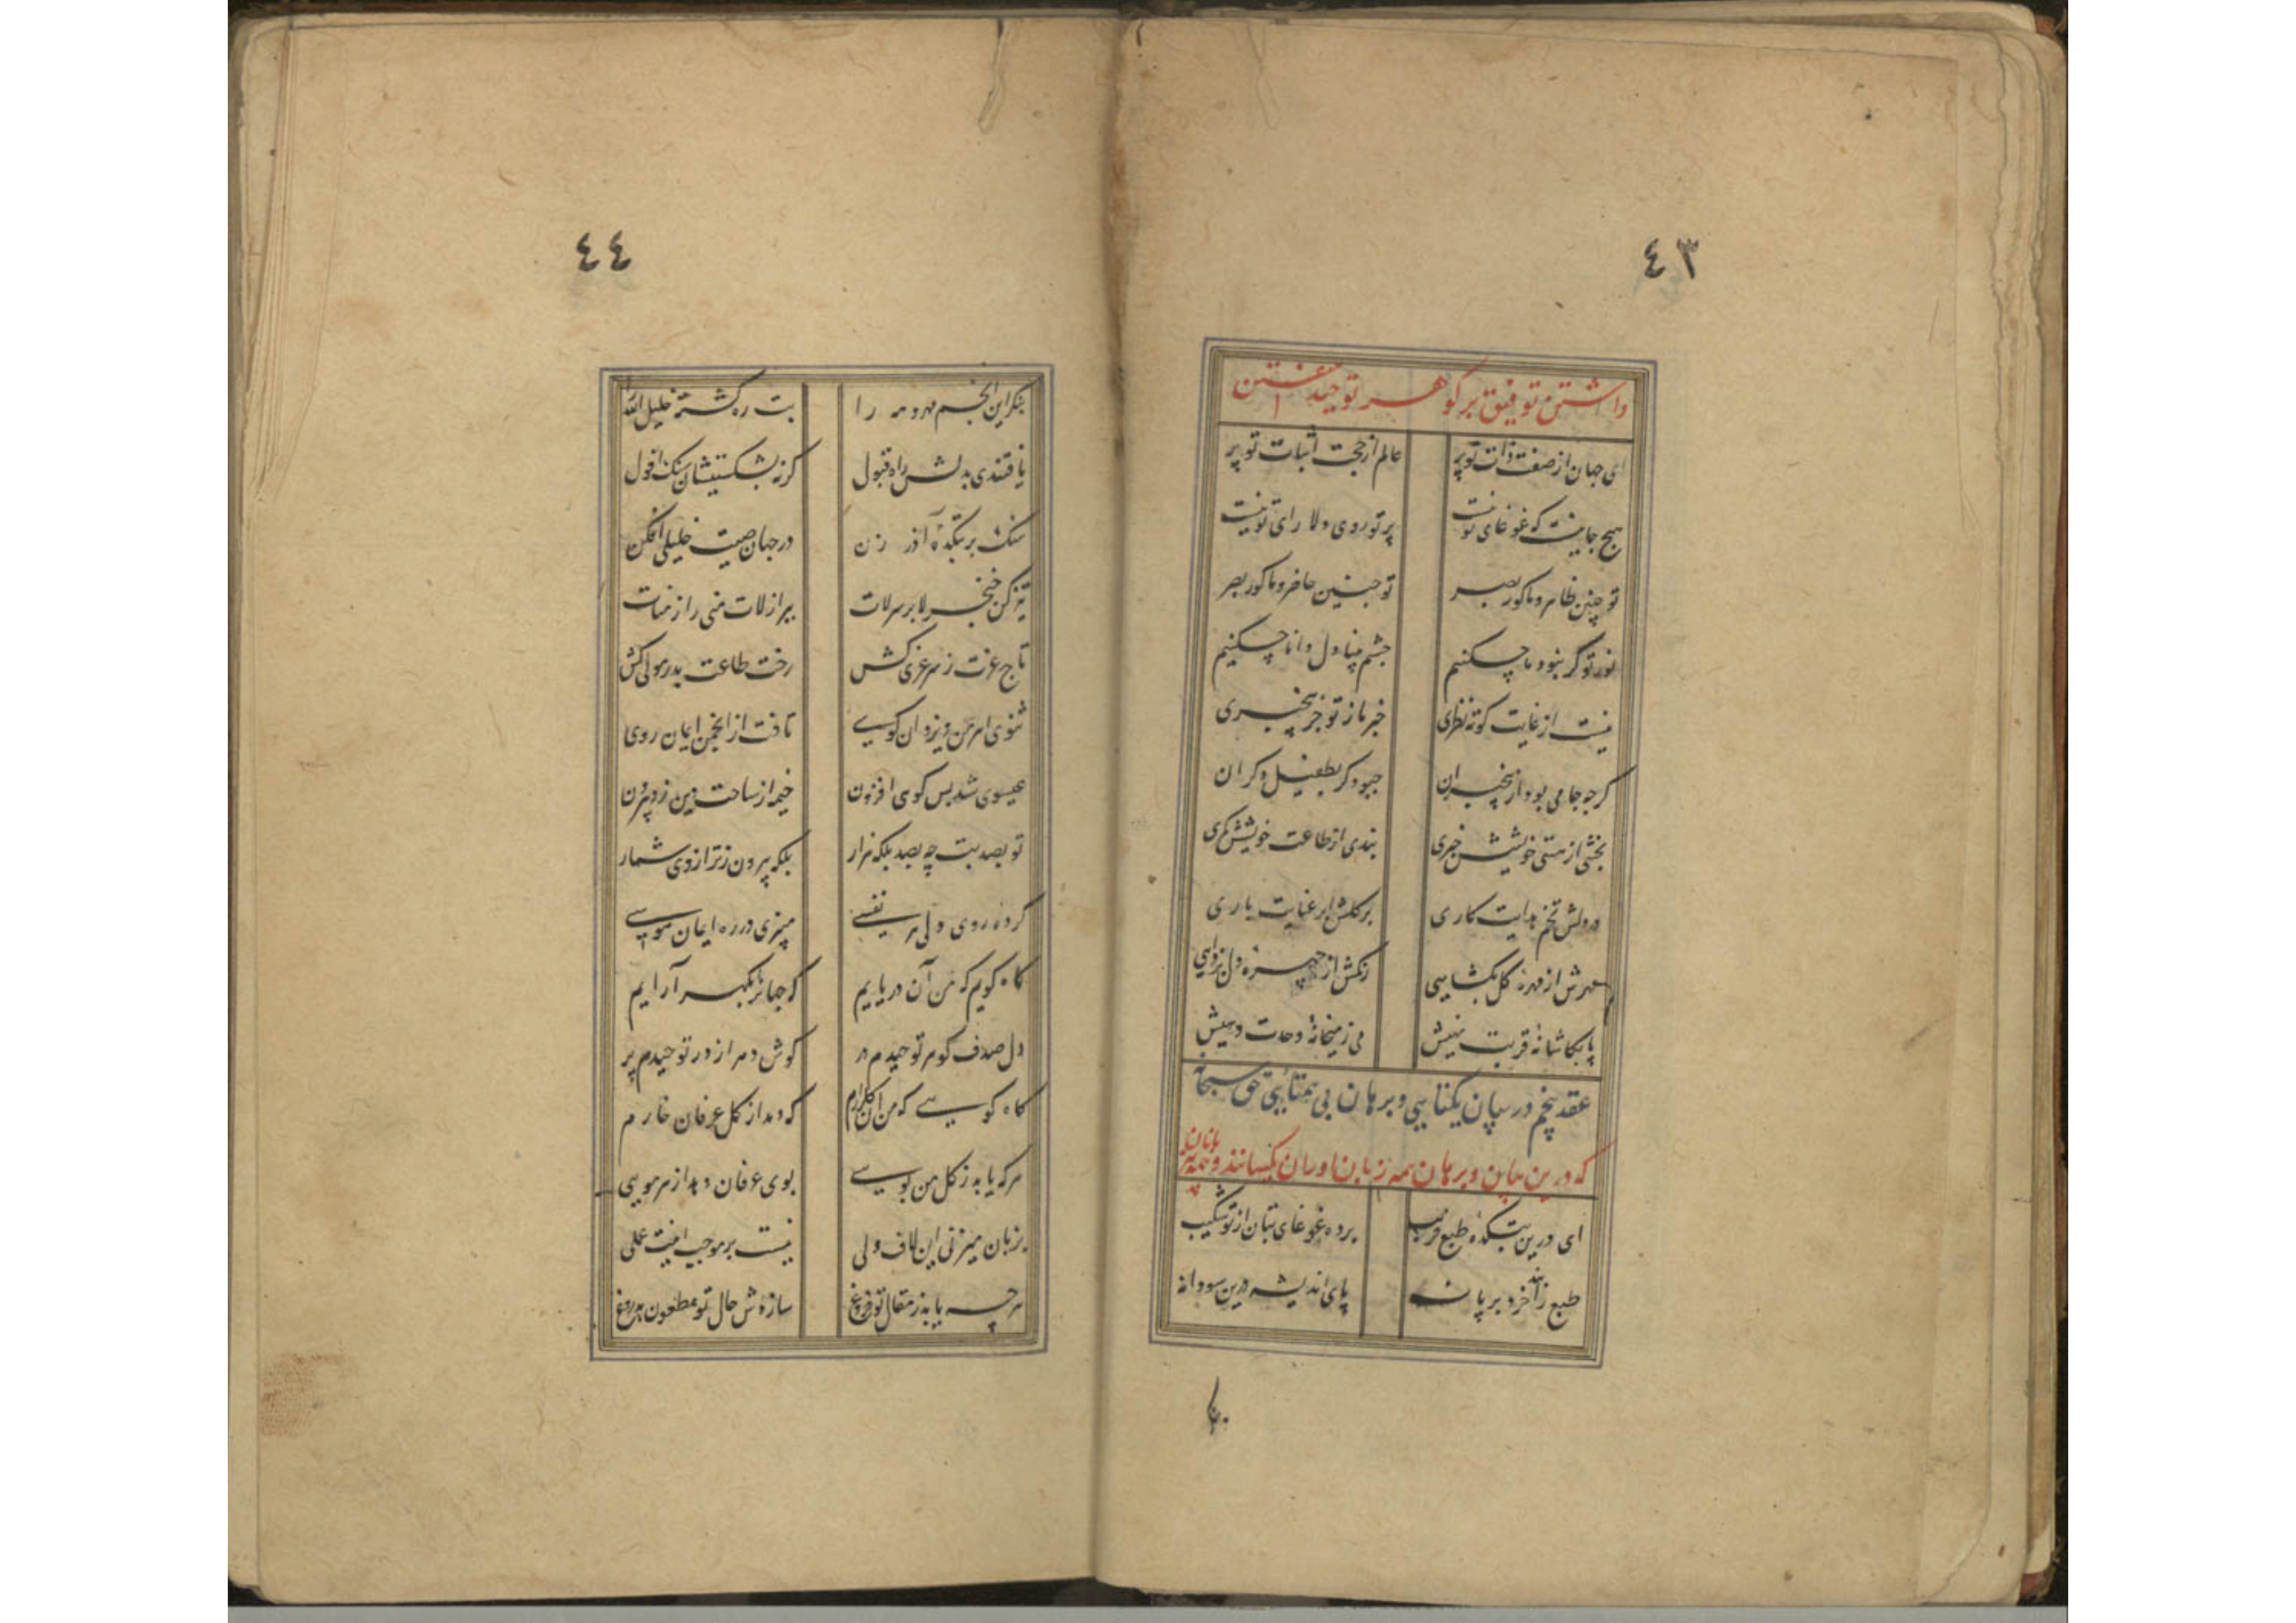 ٤٣
داشتن توفیق بر کوهر توحید سفتن
ای جهان از صفت ذات تو پر عالم از حجت اثبات تو پر
هیچ جا نیست که غوغای تو نیست پرتو روی دلارای تو نیست
تو چنین ظاهر و ما کور بصر تو چنین حاضر و ما کور بصر
نور تو کر نبود ما چکنیم چشم بینا دل دانا چکنیم
نیست از غایت کوته نظری خبر ما ز تو جز بیخبری
کرچه جامی بود از بیخبران چبود کر بطفیل دکران
بخشی از هستی خویشش خبری بندی از طاعت خویشش کمری
در دلش تخم هدایت کاری بر کلش ابر عنایت باری
مهرش از مهره کل بکشایی زنکش از چهره دل بزدایی
پا بکاشانه قربت نهیش می ز میخانه وحدت دهیش
عقد پنجم در بیان یکتایی و برهان بی همتایی حق سبحانه
که درین بیان و برهان همه زبان آوران یکسانند و همه
ای درین بتکده طبع فریب برده غوغای بتان از تو شکیب
طبع زاند خرد بر پا نه پای اندیشه درین سودا نه
بنکر
٤٤
بنکر این انجم مهر و مه را بت ره کشته خلیل الله را
یافتندی بدلش راه قبول کرنه بشکستیشان سنک افول
سنک بر بتکده آذر زن در جهان صیت خلیلی افکن
تیز کن خنجر لا بر سر لات ببر از لات منی را ز منات
تاج عزت ز سر عزی کش رخت طاعت بدر مولی کش
ثنوی اهرمن و یزدان کوی تافت از انجمن ایمان روی
عیسوی شد بس کوی افزون خیمه از ساحت دین زد بیرون
تو بصد بت چه بصد بلکه هزار بلکه بیرون ز ترازوی شمار
کرده روی دلی هر نفسی میزنی در ره ایمان هوسی
کاه کویم که من آن دریایم که جهانرا بکهر آرایم
دل صدف کوهر توحیدم در کوش دهر از در توحیدم پر
کاه کویی که من آن کلزارم که دمد از کل عرفان خارم
هر که یابد ز کل من بویی بوی عرفان دهد از هر مویی
بزبان میزنی این لاف ولی نیست بر موجب اینت عملی
هر چه یابد ز مقال تو فروغ سازدش حال تو مطعون بدروغ